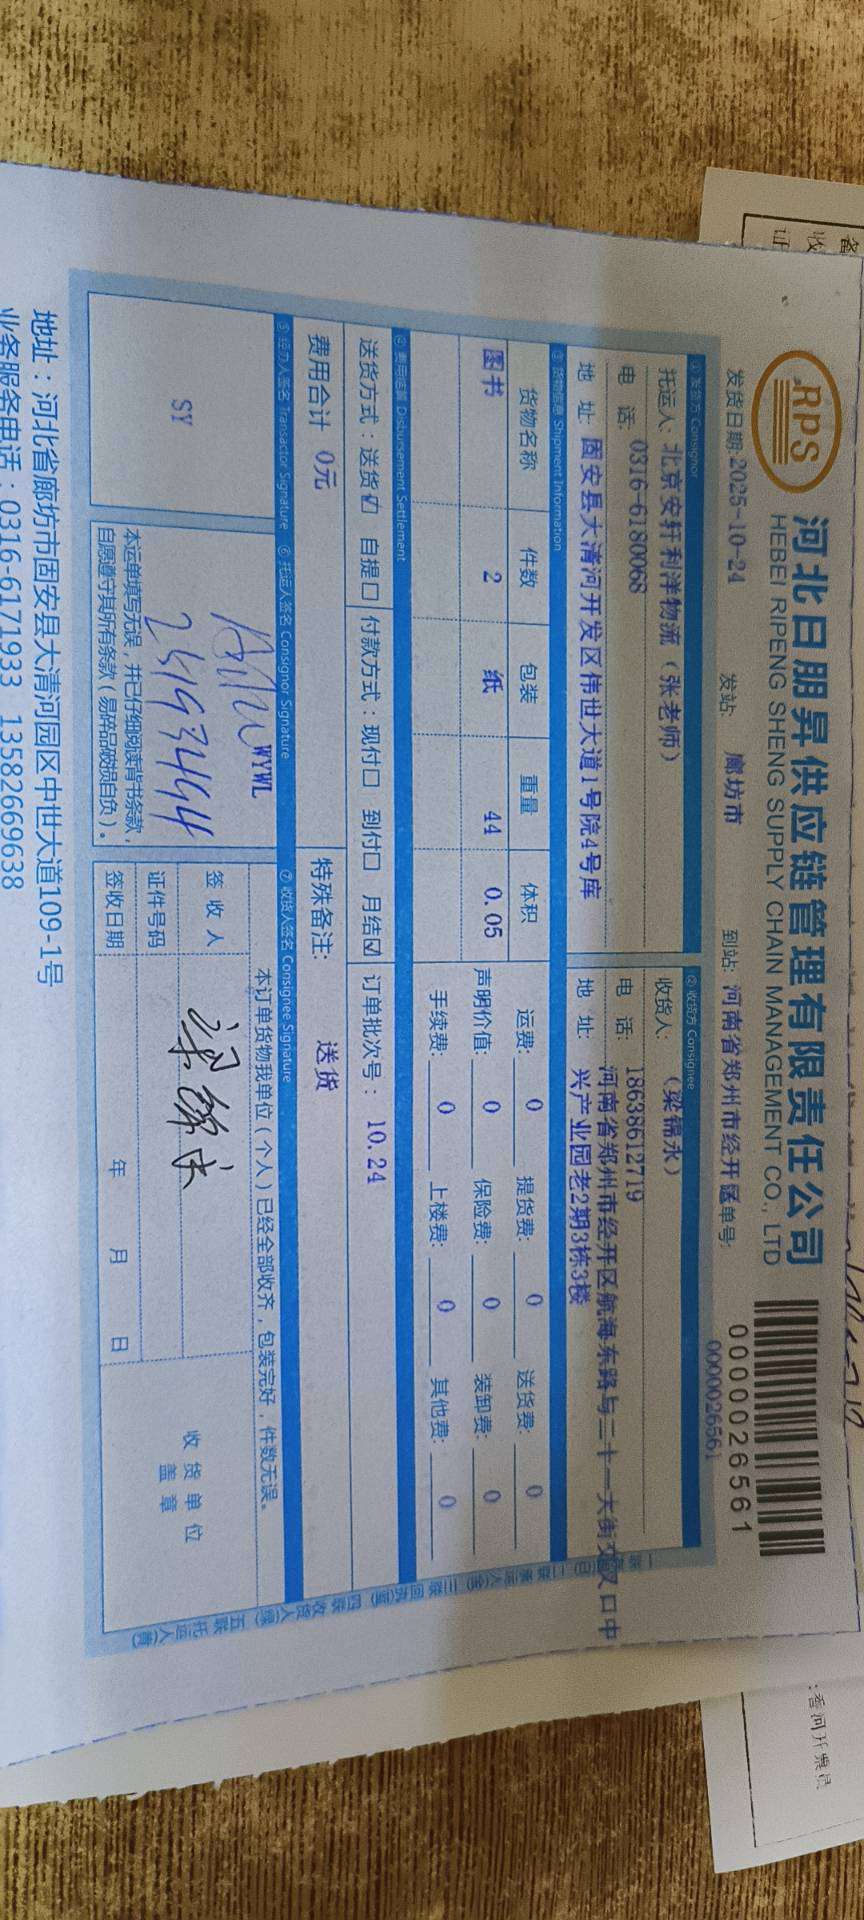 RPS
河北日朋昇供应链管理有限责任公司
HEBEI RIPENG SHENG SUPPLY CHAIN MANAGEMENT CO., LTD
0000026561
发货日期:2025-10-24 发站: 廊坊市 到站: 河南省郑州市经开区 单号: 0000026561
① 发货方 Consignor ② 收货方 Consignee
托运人: 北京安轩利洋物流（张老师） 收货人: （梁锦永）
电 话: 0316-6180068 电 话: 18638612719
地 址: 固安县大清河开发区伟世大道1号院4号库 地 址: 河南省郑州市经开区航海东路与二十一大街交叉口中
兴产业园老2期3栋3楼
③ 货物信息 Shipment Information
货物名称 件数 包装 重量 体积 运费: 0 提货费: 0 送货费: 0
图书 2 纸 44 0.05 声明价值: 0 保险费: 0 装卸费: 0
手续费: 0 上楼费: 0 其他费: 0
④ 费用结算 Disbursement Settlement
送货方式：送货☑ 自提□ 付款方式：现付□ 到付□ 月结☑ 订单批次号： 10.24
费用合计 0元 特殊备注: 送货
⑤ 经办人签名 Transactor Signature ⑥ 托运人签名 Consignor Signature ⑦ 收货人签名 Consignee Signature
SY
WYWL
本运单填写无误，并已仔细阅读背书条款，
自愿遵守其所有条款（易碎品破损自负）。
本订单货物我单位（个人）已经全部收齐，包装完好，件数无误。
签 收 人 梁锦永
证件号码
签收日期 年 月 日
收货单位
盖 章
地址：河北省廊坊市固安县大清河园区中世大道109-1号
业务服务电话：0316-6171933 13582669638
:香河开票员